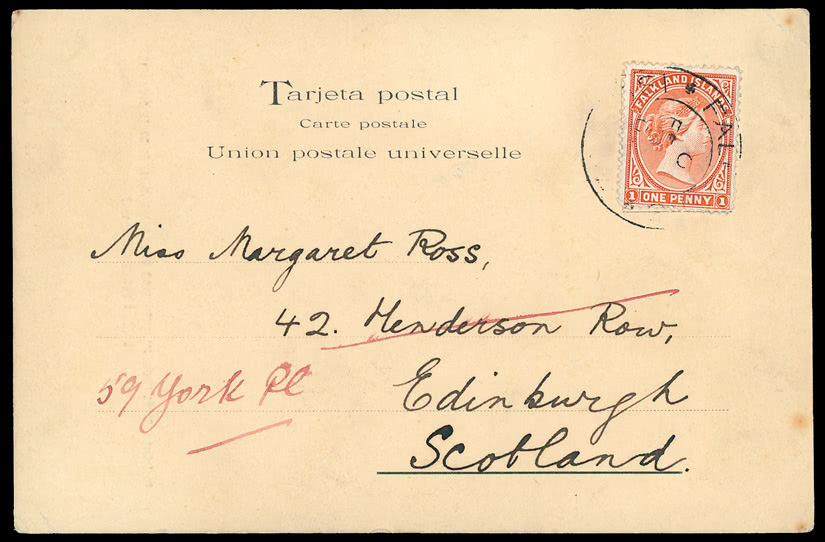 Tarjeta postal
Carte postale
Union postale universelle
FALKLAND ISLANDS
1 ONE PENNY 1
Miss Margaret Ross,
42. Henderson Row,
59 York Pl
Edinburgh
Scotland.